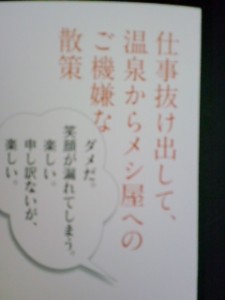 仕事抜け出して、
温泉からメシ屋への
ご機嫌な
散策
ダメだ。
笑顔が漏れてしまう。
楽しい。
申し訳ないが、
楽しい。